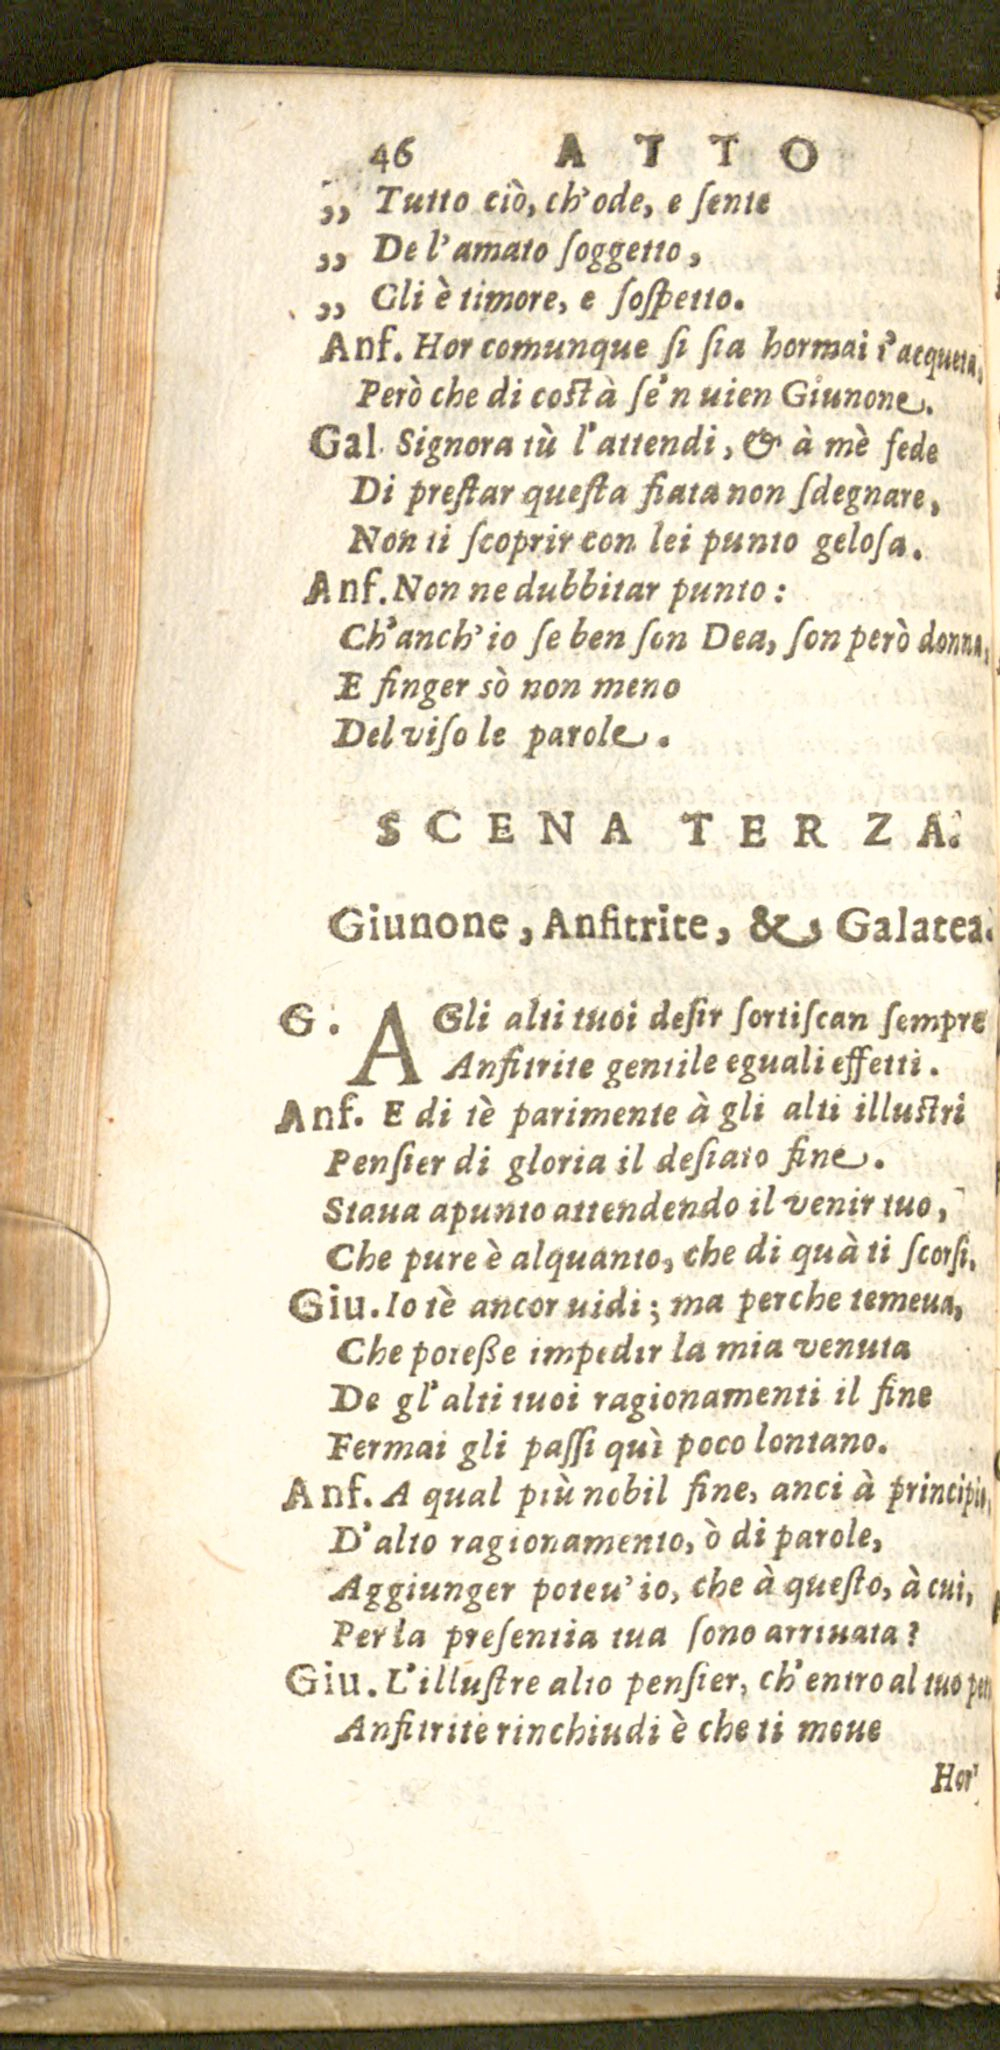 46 ATTO
„ Tutto ciò, ch'ode, e ſente
„ De l'amato ſoggetto,
„ Gli è timore, e ſoſpetto.
Anf. Hor comunque ſi ſia hormai t'acqueta,
Però che di coſtà ſe'n uien Giunone.
Gal. Signora tù l'attendi, & à mè fede
Di preſtar queſta fiata non ſdegnare,
Non ti ſcoprir con lei punto geloſa.
Anf. Non ne dubbitar punto:
Ch'anch'io ſe ben ſon Dea, ſon però donna,
E finger sò non meno
Del viſo le parole.
SCENA TERZA.
Giunone, Anfitrite, & Galatea.
G. A Gli alti tuoi deſir ſortiſcan ſempre
Anfitrite gentile eguali effetti.
Anf. E di tè parimente à gli alti illuſtri
Penſier di gloria il deſiato fine.
Staua apunto attendendo il venir tuo,
Che pure è alquanto, che di quà ti ſcorſi.
Giu. Io tè ancor uidi; ma perche temeua,
Che poteße impedir la mia venuta
De gl'alti tuoi ragionamenti il fine
Fermai gli paſſi quì poco lontano.
Anf. A qual più nobil fine, anci à principio,
D'alto ragionamento, ò di parole,
Aggiunger poteu'io, che à queſto, à cui,
Per la preſentia tua ſono arriuata?
Giu. L'illuſtre alto penſier, ch'entro al tuo
Anfitrite rinchiudi è che ti moue
Hor'